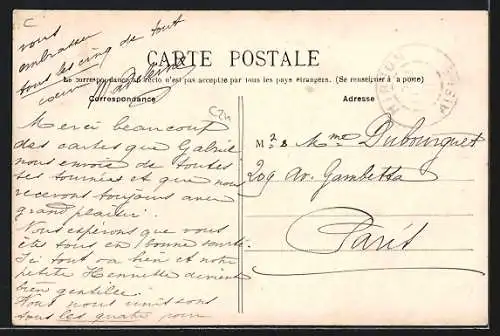 C
vous
embrasser
tous les cinq de tout
coeur Madeleine
CARTE POSTALE
La correspondance au recto n'est pas acceptée par tous les pays étrangers. (Se renseigner à la poste)
Correspondance
Adresse
HIRSON
AISNE
Merci beaucoup
des cartes que Gabriel
nous envoie de toutes
ses tournées et que nous
recevons toujours avec
grand plaisir.
Nous espérons que vous
êtes tous en bonne santé.
Ici tout va bien et notre
petite Henriette devient
bien gentille.
Nous nous unissons
tous les quatre pour
C24
M2 & Mme Dubourguet
209 Av. Gambetta
Paris